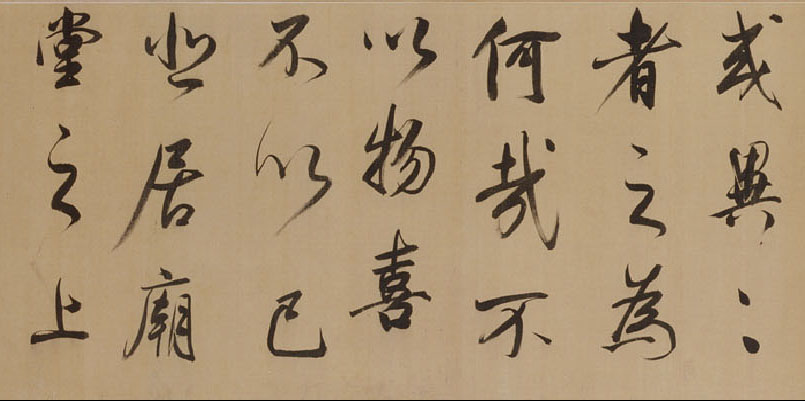 或異二
者之為
何哉不
以物喜
不以己
悲居廟
堂之上